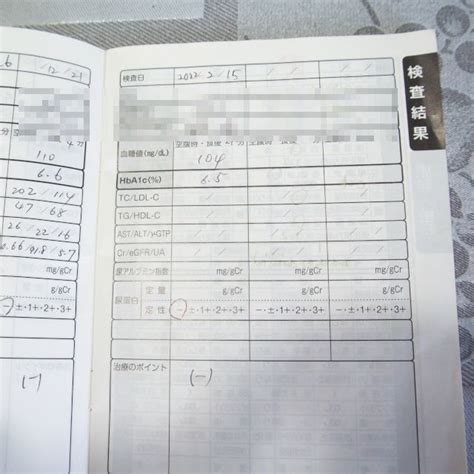 12/21
分
4分
110
6.6
202/114
47/68
26/22/16
mg/gCr
g/gCr
g/gCr
(-) ±・1+・2+・3+
(-)
検査結果
検査日 2022/2/15
血糖値(mg/dL)
104
HbA1c(%) 6.5
TC/LDL-C
TG/HDL-C
AST/ALT/γ-GTP
Cr/eGFR/UA
尿アルブミン指数 mg/gCr mg/gCr mg/gCr
尿蛋白 定量 g/gCr g/gCr g/gCr
定性 -・±・1+・2+・3+ -・±・1+・2+・3+ -・±・1+・2+・3+
治療のポイント (-)